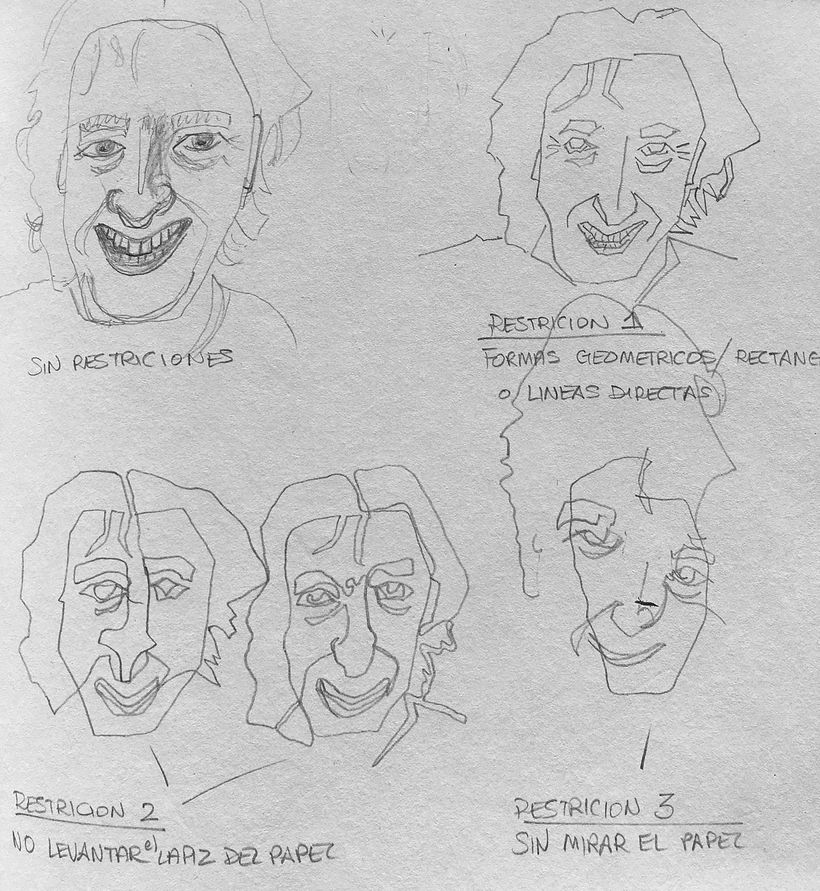 SIN RESTRICIONES
RESTRICION 1
FORMAS GEOMETRICOS/ RECTANG
O LINEAS DIRECTAS
RESTRICION 2
NO LEVANTAR el LAPIZ DEL PAPEL
RESTRICION 3
SIN MIRAR EL PAPEL